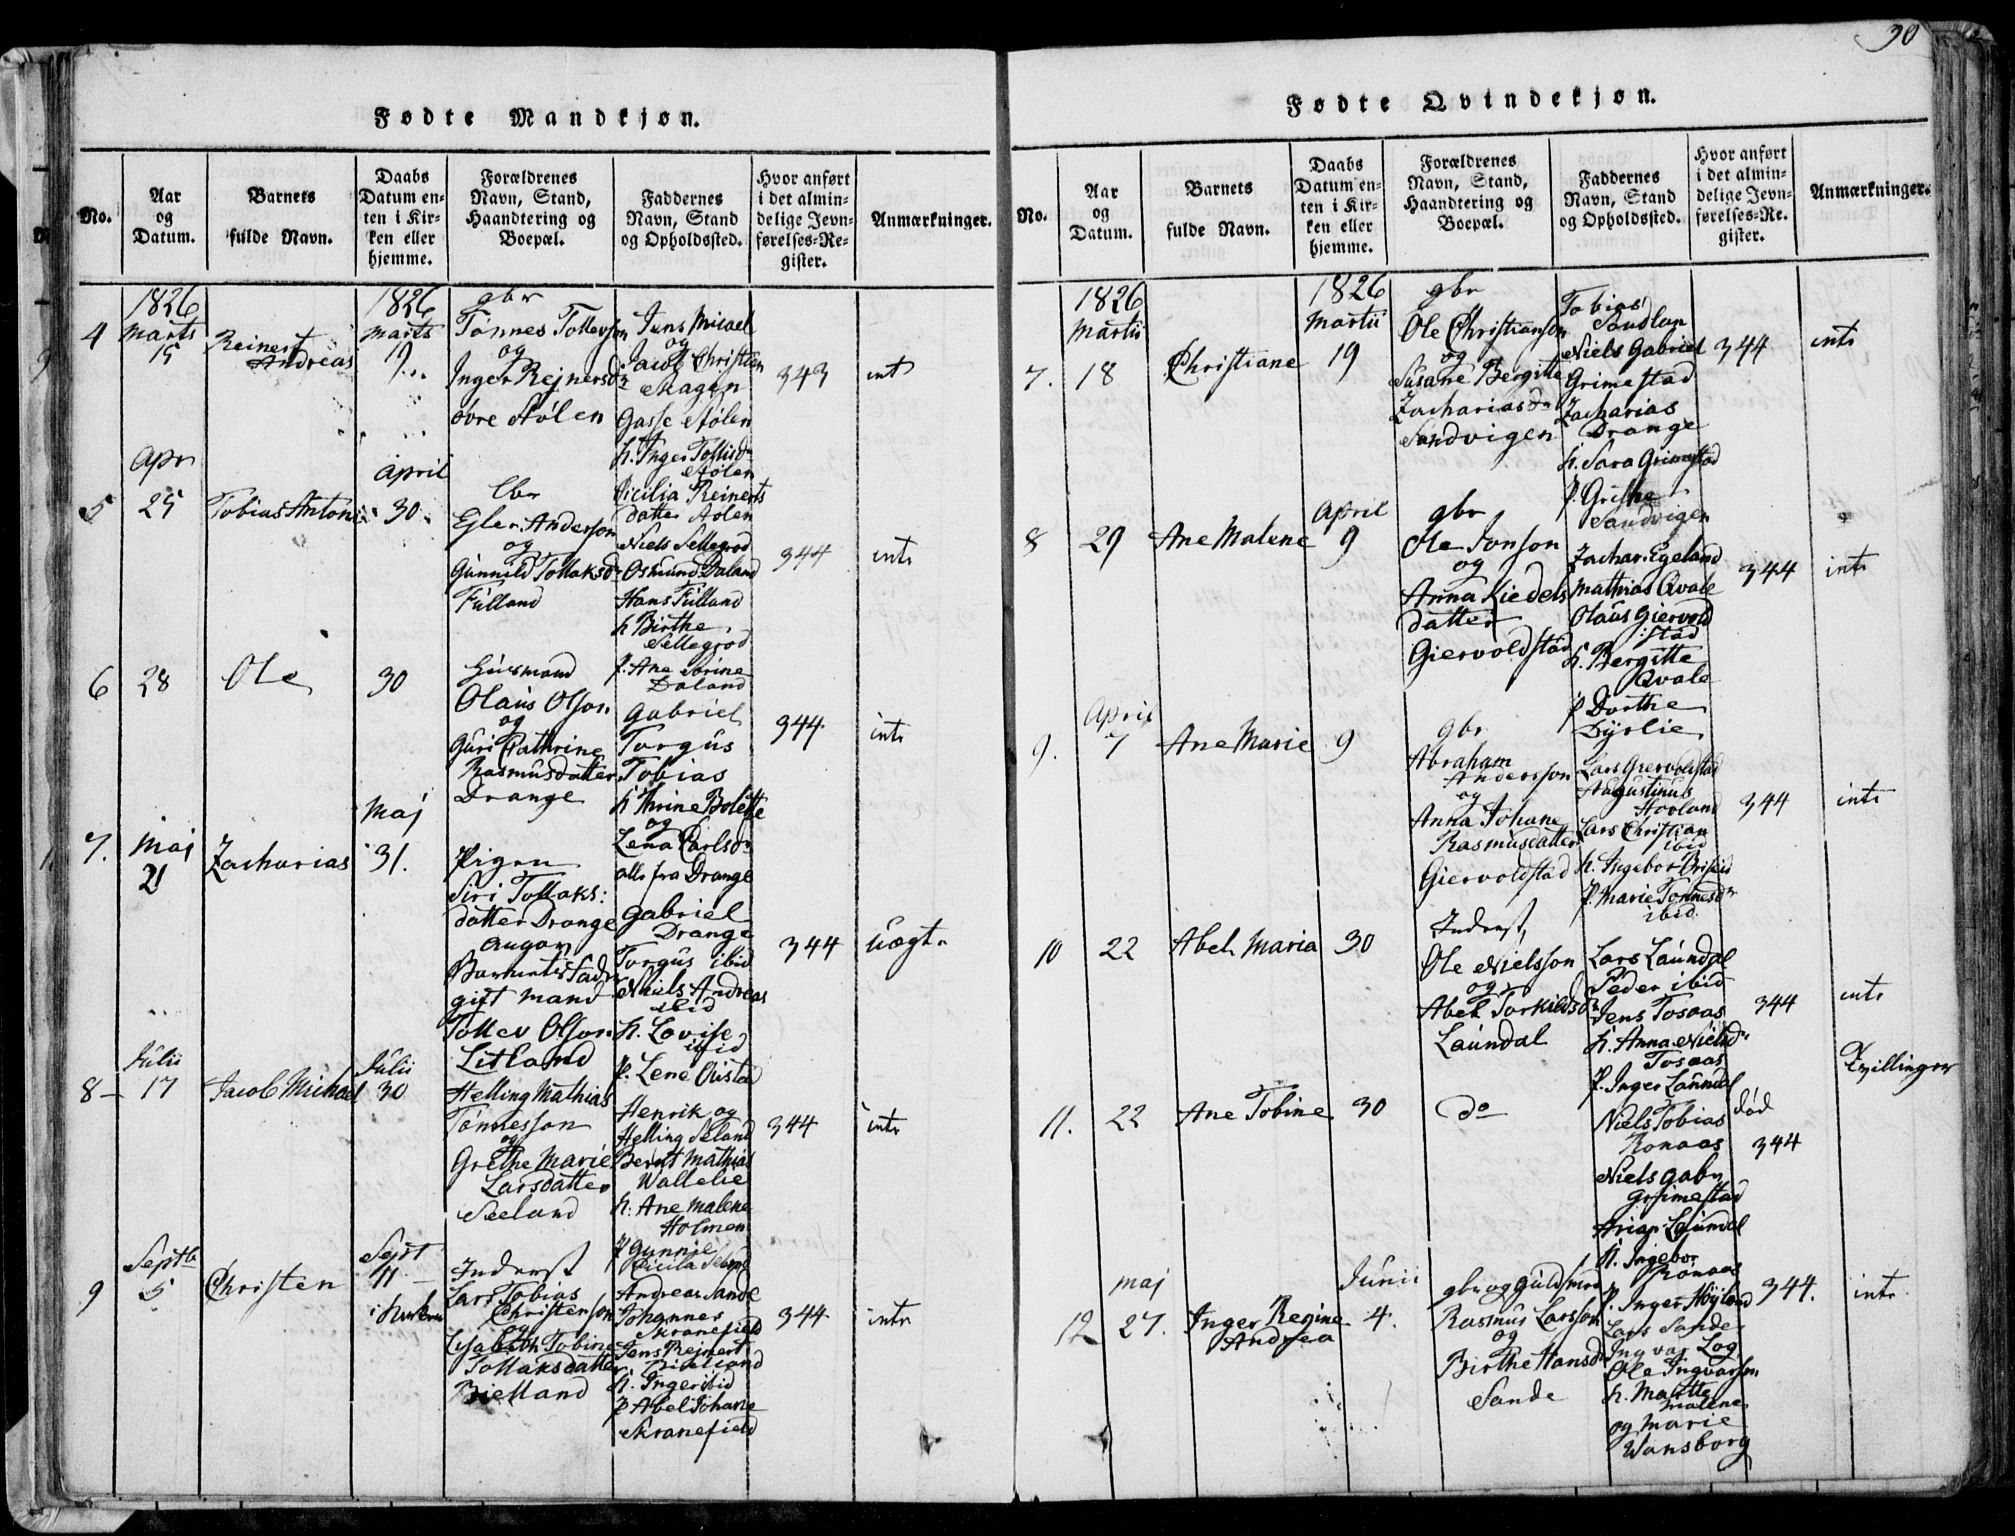 Fødte Mandkjøn.
No.
Aar
og
Datum.
Barnets
fulde Navn.
Daabs
Datum en-
ten i Kir-
ken eller
hjemme.
Forældrenes
Navn, Stand,
Haandtering og
Boepæl.
Faddernes
Navn, Stand
og Opholdssted.
Hvor anført
i det almin-
delige Jevn-
førelses-Re-
gister.
Anmærkninger.
4
1826
Marts
15
Reinert
Andreas
1826
Marts
19
gbr
Tønnes Tollevson
og
Inger Rejnersdr
øvre Stølen
Jens Micael
og
Jacob Christian
Skagen
Gasse Stølen
k. Inger Tollisdr
Stølen
Cicilia Reinerts
datter Stølen
343
int
5
Apr
25
Tobias Antoni
April
30
lbr
Egler Anderson
og
Gunnild Tollaksdr
Fulland
Niels Sellegrod
Osmund Daland
Hans Fulland
k Birthe
Sellegrod
p. Ane Sørine
Daland
344
intr
6
28
Ole
30
Huusmand
Olaus Olson
og
Guri Cathrine
Rasmusdatter
Drange
Gabriel
Torgus
Tobias
k Thrine Bolette
og
Lena Carlsdr
alle fra Drange
344
intr
7.
Maj
21
Zacharias
Maj
31.
Pigen
Siri Tollaks:
datter Drange
angav
Barnets Fadr
gift mand
Tollev Olson
Litland
Gabriel
Drange
Torgus ibid
Niels Andreas
ibid
k. Lovise
ibid
p. Lene Qvistad
344
Uægt.
8
Julii
17
Jacob Michael
Julii
30
Helling Mathias
Tønnesson
og
Grethe Marie
Larsdatter
Seeland
Henrik og
Helling Seland
Bernt Mathias
Wallelie
k. Ane Malene
Holmen
p Gunnie
Cicilia Seland
344
intr
9
Septb
5
Christen
Sept
11
i Kirken
Inderst
Lars Tobias
Christenson
og
Lisabeth Tobine
Tollaksdatter
Bielland
Andreas Sande
Johannes
Skranefield
Jens Reinert
Bielland
k. Inger ibid
p Abel Johane
Skranefield
344
intr
90
Fødte Qvindekjøn.
No.
Aar
og
Datum.
Barnets
fulde Navn.
Daabs
Datum en-
ten i Kir-
ken eller
hjemme.
Forældrenes
Navn, Stand,
Haandtering og
Boepæl.
Faddernes
Navn, Stand
og Opholdssted.
Hvor anført
i det almin-
delige Jevn-
førelses-Re-
gister.
Anmærkninger.
7.
1826
Martii
18
Christiane
1826
Martii
19
gbr
Ole Christianson
og
Susane Bergitte
Zachariasdr
Sandvigen
Tobias
Saudlan
Niels Gabriel
Grimestad
Zacharias
Drange
k. Sara Grimestad
p. Grethe
Sandvigen
344
intr
8
29
Ane Malene
April
9
gbr
Ole Jonson
og
Anna Kiedels
datter
Giervoldstad
Zachar. Egeland
Mathias Qvale
Olaus Giervold
stad
k. Bergitte
Qvale
p Dorthe
Dyrlie
344
intr
9.
April
7
Ane Marie
9
gbr
Abraham
Andersson
og
Anna Johane
Rasmusdatter
Giervoldstad
Lars Giervoldstad
Augustinus
Hovland
Lars Christian
ibid
k. Ingebor Briseid
p. Marie Tønnesdr
ibid
344
intr
10
22
Abel Maria
30
Inderst
Ole Nielsson
og
Abel Torkildsdr
Laundal
Lars Laundal
Peder ibid
Jens Tosaas
k. Anna Nielsdr
Tosaas
p. Inger Laundal
344
intr
Tvillinger
11.
22
Ane Tobine
30
do
Niels Tobias
Ronaas
Niels Gabr
Grimestad
Ariap. Laundal
k. Ingebor
Ronaas
p. Inger Høyland
død
344
12
Maj
27.
Inger Regine
Andrea
Junii
4.
gbr og Guldsmed
Rasmus Larsson
og
Birthe Hansdr
Sande
Lars Sande
Ingvar Log
Ole Ingvarson
k. Marthe
Malene
og Marie
Wansborg
344.
intr